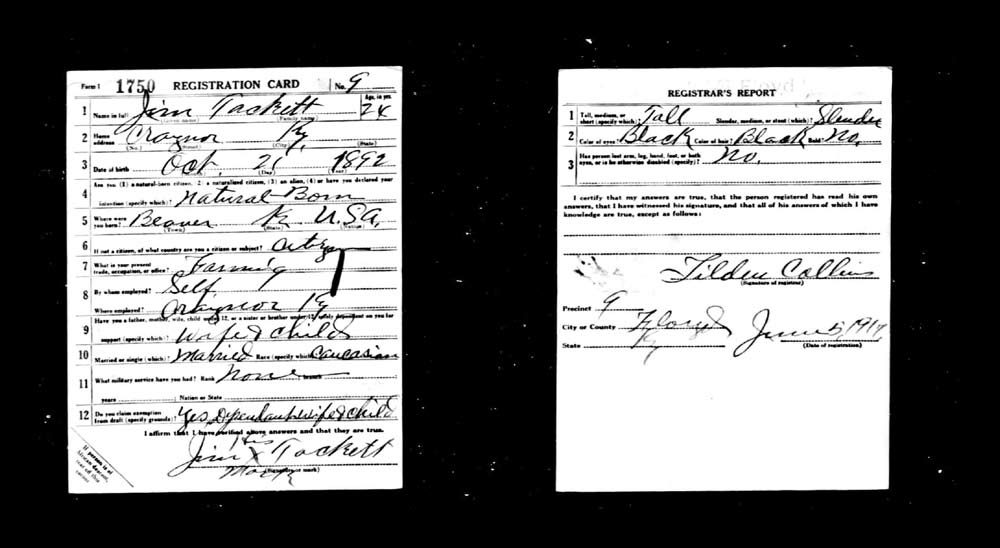 Form 1 1750 REGISTRATION CARD No. 9
1 Name in full Jim Tackett Age, in yrs. 24
(Given name) (Family name)
2 Home address Craynor Ky
(No.) (Street) (City) (State)
3 Date of birth Oct. 21 1892
(Month) (Day) (Year)
4 Are you (1) a natural-born citizen, 2 a naturalized citizen, (3) an alien, (4) or have you declared your
intention (specify which)? Natural Born
5 Where were you born? Beaver K U.S.A.
(Town) (State) (Nation)
6 If not a citizen, of what country are you a citizen or subject? Citizen
7 What is your present trade, occupation, or office? Farming
8 By whom employed? Self
Where employed? Craynor Ky
9 Have you a father, mother, wife, child under 12, or a sister or brother under 12, solely dependent on you for
support (specify which)? Wife & child
10 Married or single (which)? Married Race (specify which)? Caucasian
11 What military service have you had? Rank None branch
years Nation or State
12 Do you claim exemption from draft (specify grounds)? Yes, Dependant wife & child
I affirm that I have verified above answers and that they are true.
His
Jim X Tackett
Mark
(Signature or mark)
If person is of
African descent,
tear off this
corner
REGISTRAR'S REPORT
1 Tall, medium, or short (specify which)? Tall Slender, medium, or stout (which)? Slender
2 Color of eyes? Black Color of hair? Black Bald? No.
3 Has person lost arm, leg, hand, foot, or both eyes, or is he otherwise disabled (specify)? No.
I certify that my answers are true, that the person registered has read his own
answers, that I have witnessed his signature, and that all of his answers of which I have
knowledge are true, except as follows:
Tilden Collins
(Signature of registrar)
Precinct 9
City or County Floyd
State Ky
June 5, 1917
(Date of registration)